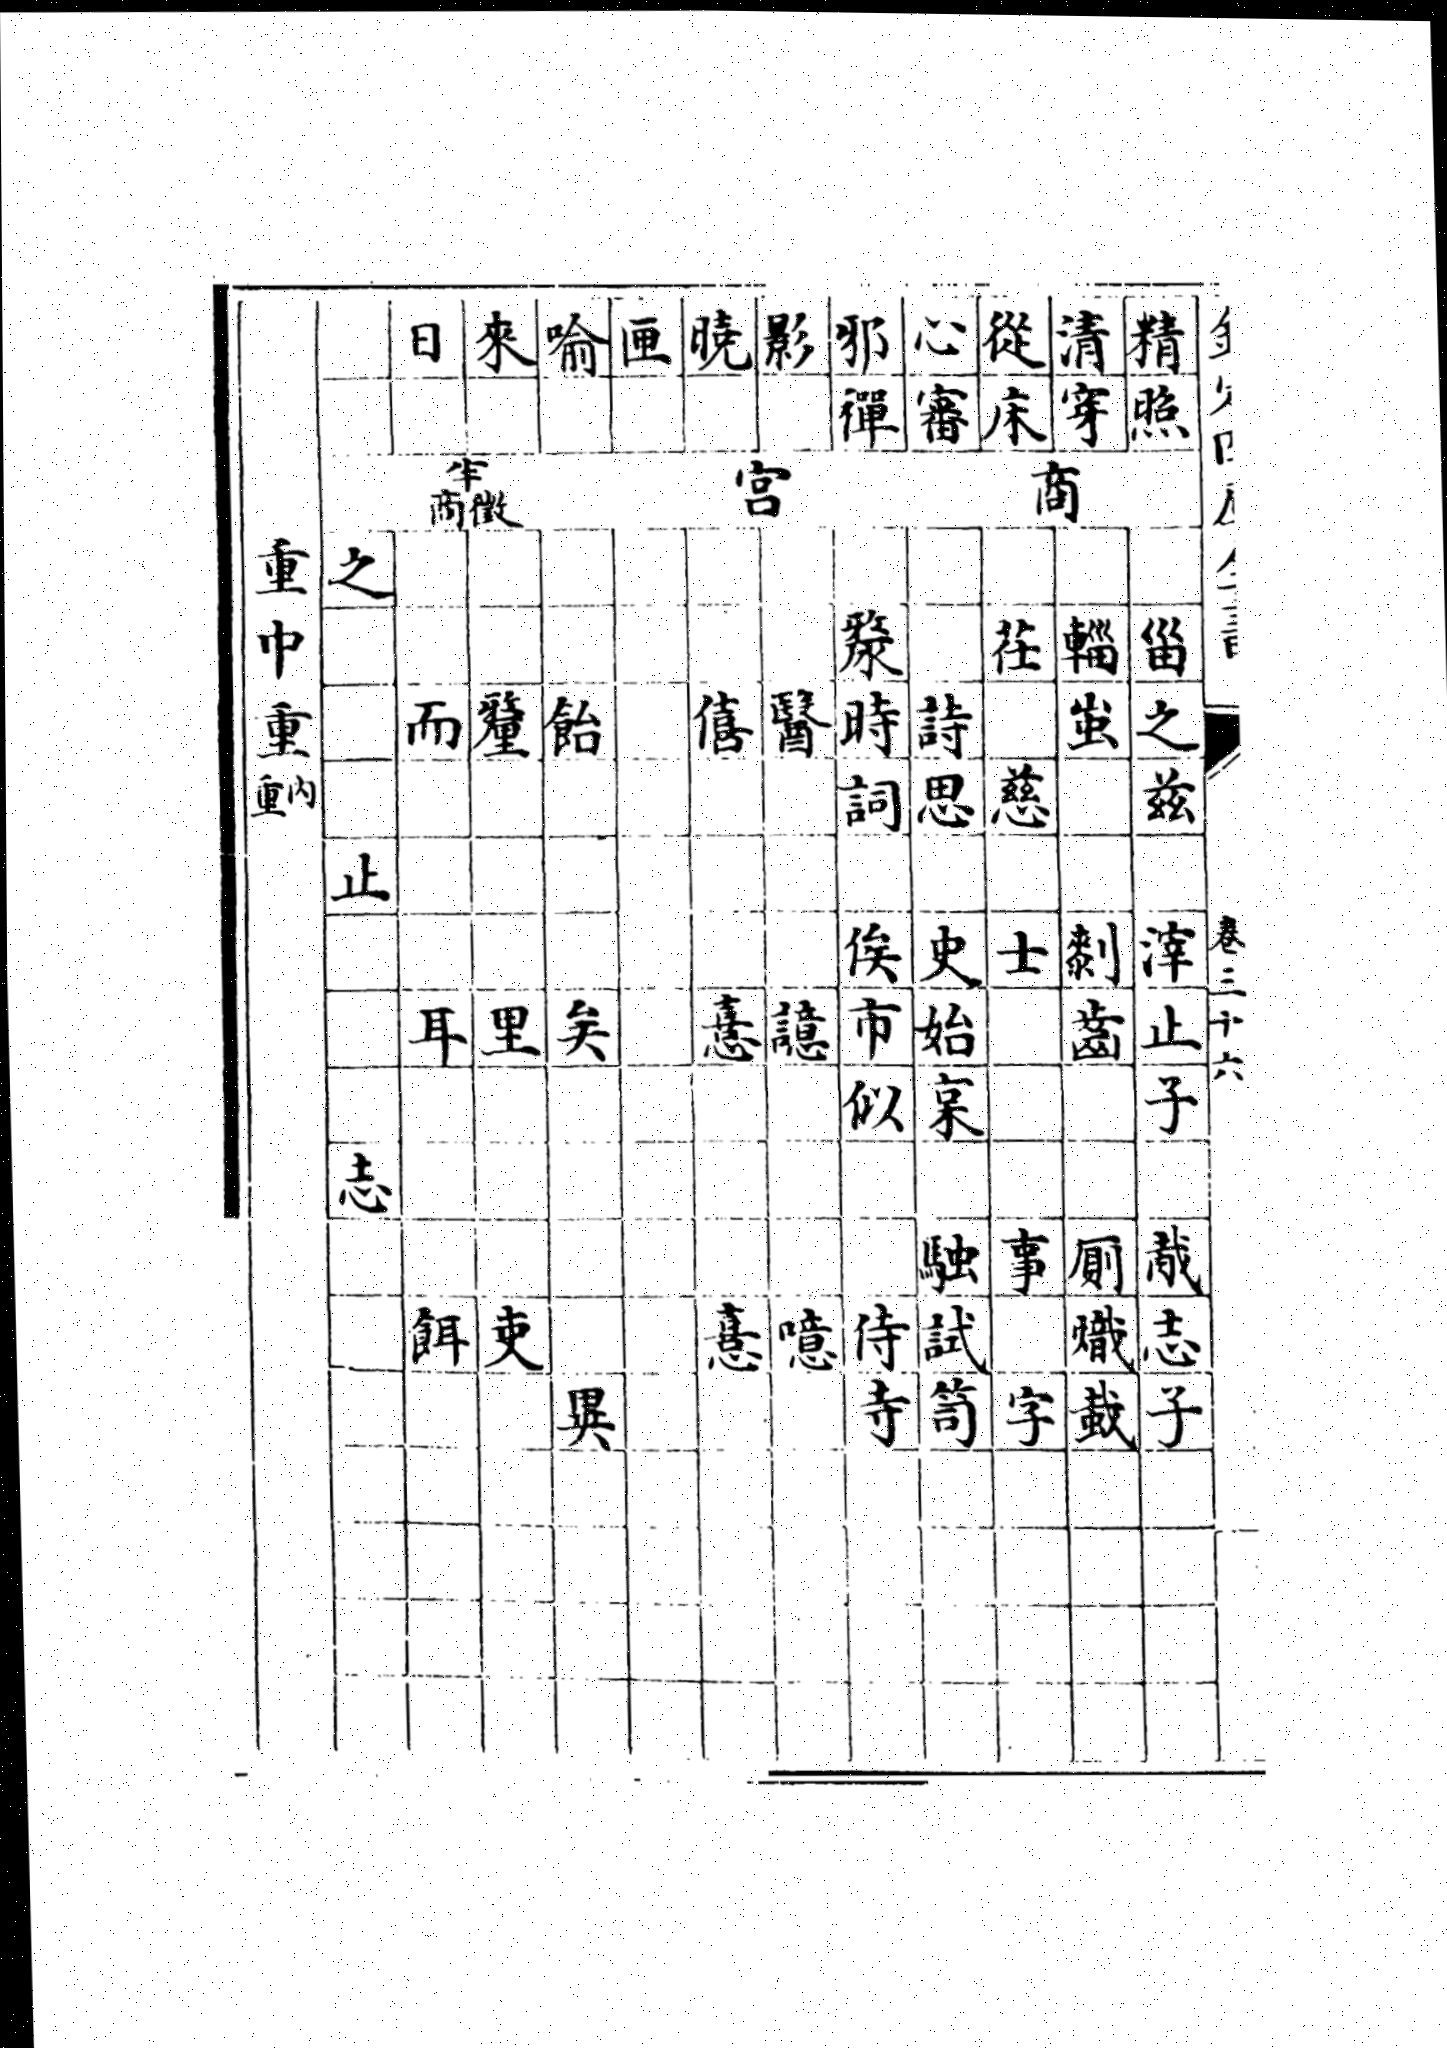 欽定四庫全書 卷三十六
精照 甾之兹 滓止子 胾志子
清穿 輜蚩 齒 厠熾蛓
商
從床 茌慈 士 事字
心審 詩思 史始枲 駛試笥
邪禪 漦時詞 俟市似 侍寺
影 醫 譩 噫
宫
曉 僖 憙 憙
匣
喻 飴 矣 異
來 釐 里 吏
半徵商
日 而 耳 餌
之 止 志
重中重内重